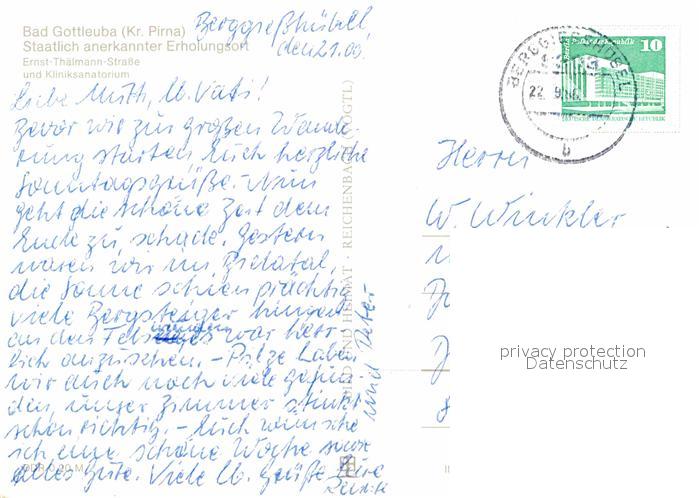 Bad Gottleuba (Kr. Pirna)
Staatlich anerkannter Erholungsort
Ernst-Thälmann-Straße
und Kliniksanatorium
Berggießhübel,
den 21.09.
Liebe Mutti, lb. Vati!
Bevor wir zur großen Wande-
rung starten Euch herzliche
Sonntagsgrüße. - Nun
geht die schöne Zeit dem
Ende zu, schade. Gestern
waren wir im Bielatal,
die Sonne schien prächtig
viele Bergsteiger hingen
an den Felswänden war herr-
lich anzusehen. - Pilze haben
wir auch noch viele gefun-
den, unser Zimmer stinkt
schon richtig. - Euch wünsche
ich eine schöne Woche sowie
alles Gute. Viele lb. Grüße Eure
und Peter
BILD UND HEIMAT · REICHENBACH (VOGTL)
DDR 0,20 M
BERGGIESSHÜBEL
22.9.
b
10
DEUTSCHE DEMOKRATISCHE REPUBLIK
Herrn
W. Winkler
privacy protection
Datenschutz